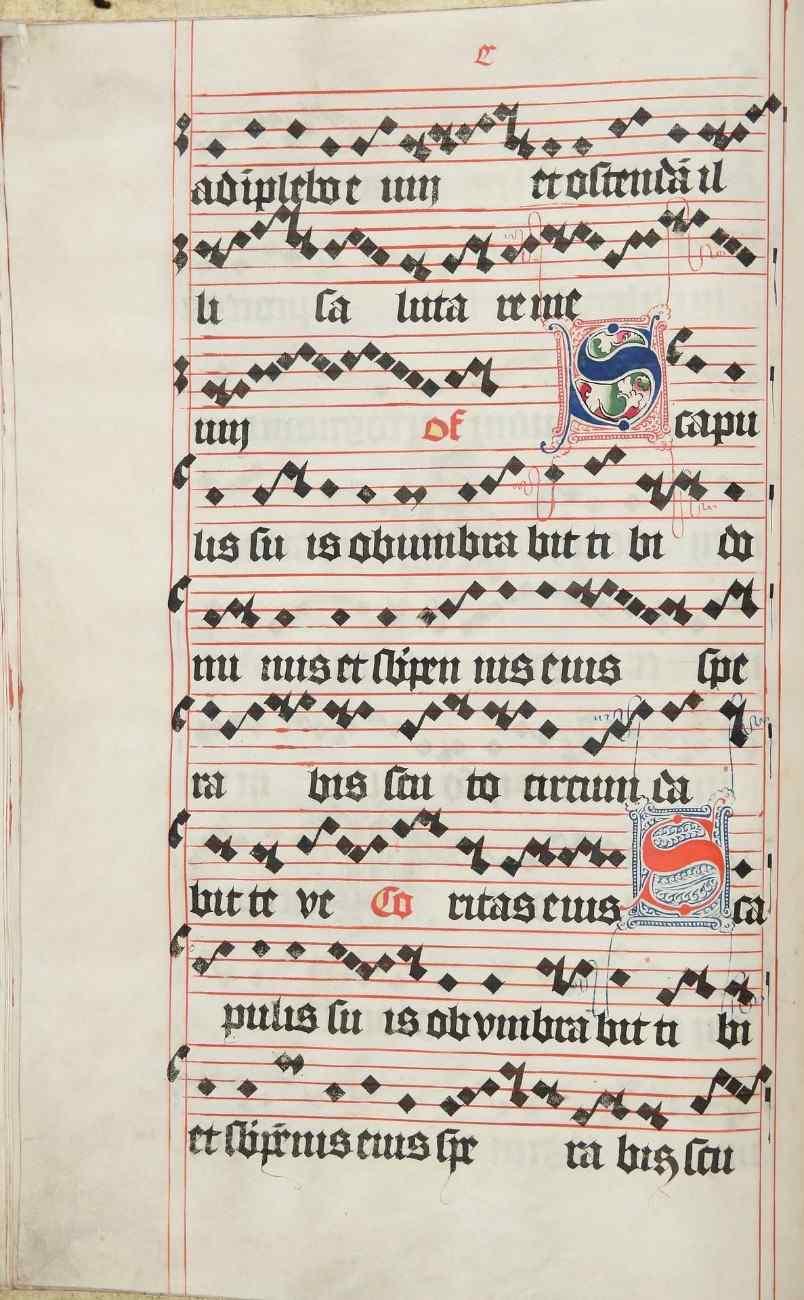 C
adīplebo e um et ostendā il
li sa luta re me
um of Scapu
lis su is obumbra bit ti bi do
mi nus et sb̄pen nis eius spe
ra bis scu to circum da
bit te ve Co ritas eius Sca
pulis su is obvmbra bit ti bi
et sb̄pēnis eius spe ra bis scu